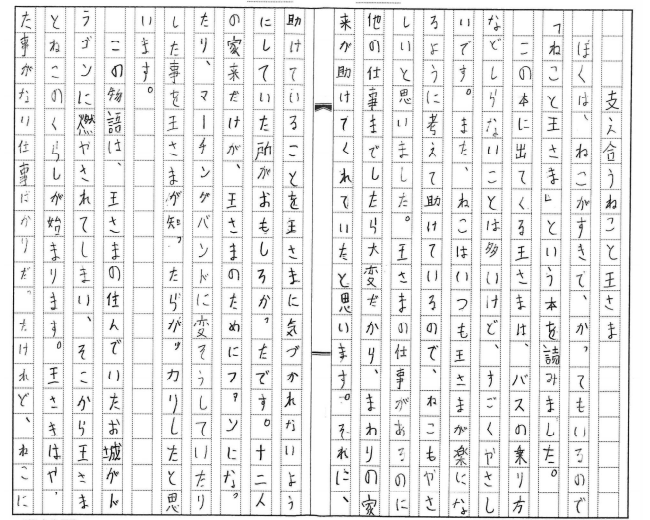 支え合うねこと王さま
ぼくは、ねこがすきで、かってもいるので
「ねこと王さま」という本を読みました。
この本に出てくる王さまは、バスの乗り方
などしらないことは多いけど、すごくやさし
いです。また、ねこはいつも王さまが楽にな
るように考えて助けているので、ねこもやさ
しいと思いました。王さまの仕事があるのに
他の仕事までしたら大変だから、まわりの家
来が助けてくれていたと思います。それに、
助けていることを王さまに気づかれないよう
にしていた所がおもしろかったです。十二人
の家来だけが、王さまのためにファンにな
たり、マーチングバンドに変そうしていたり
した事を王さまが知ったらがっカリしたと思
います。
この物語は、王さまの住んでいたお城がド
ラゴンに燃やされてしまい、そこから王さま
とねこのくらしが始まります。王さまはや
た事がない仕事ばかりだったけれど、ねこに